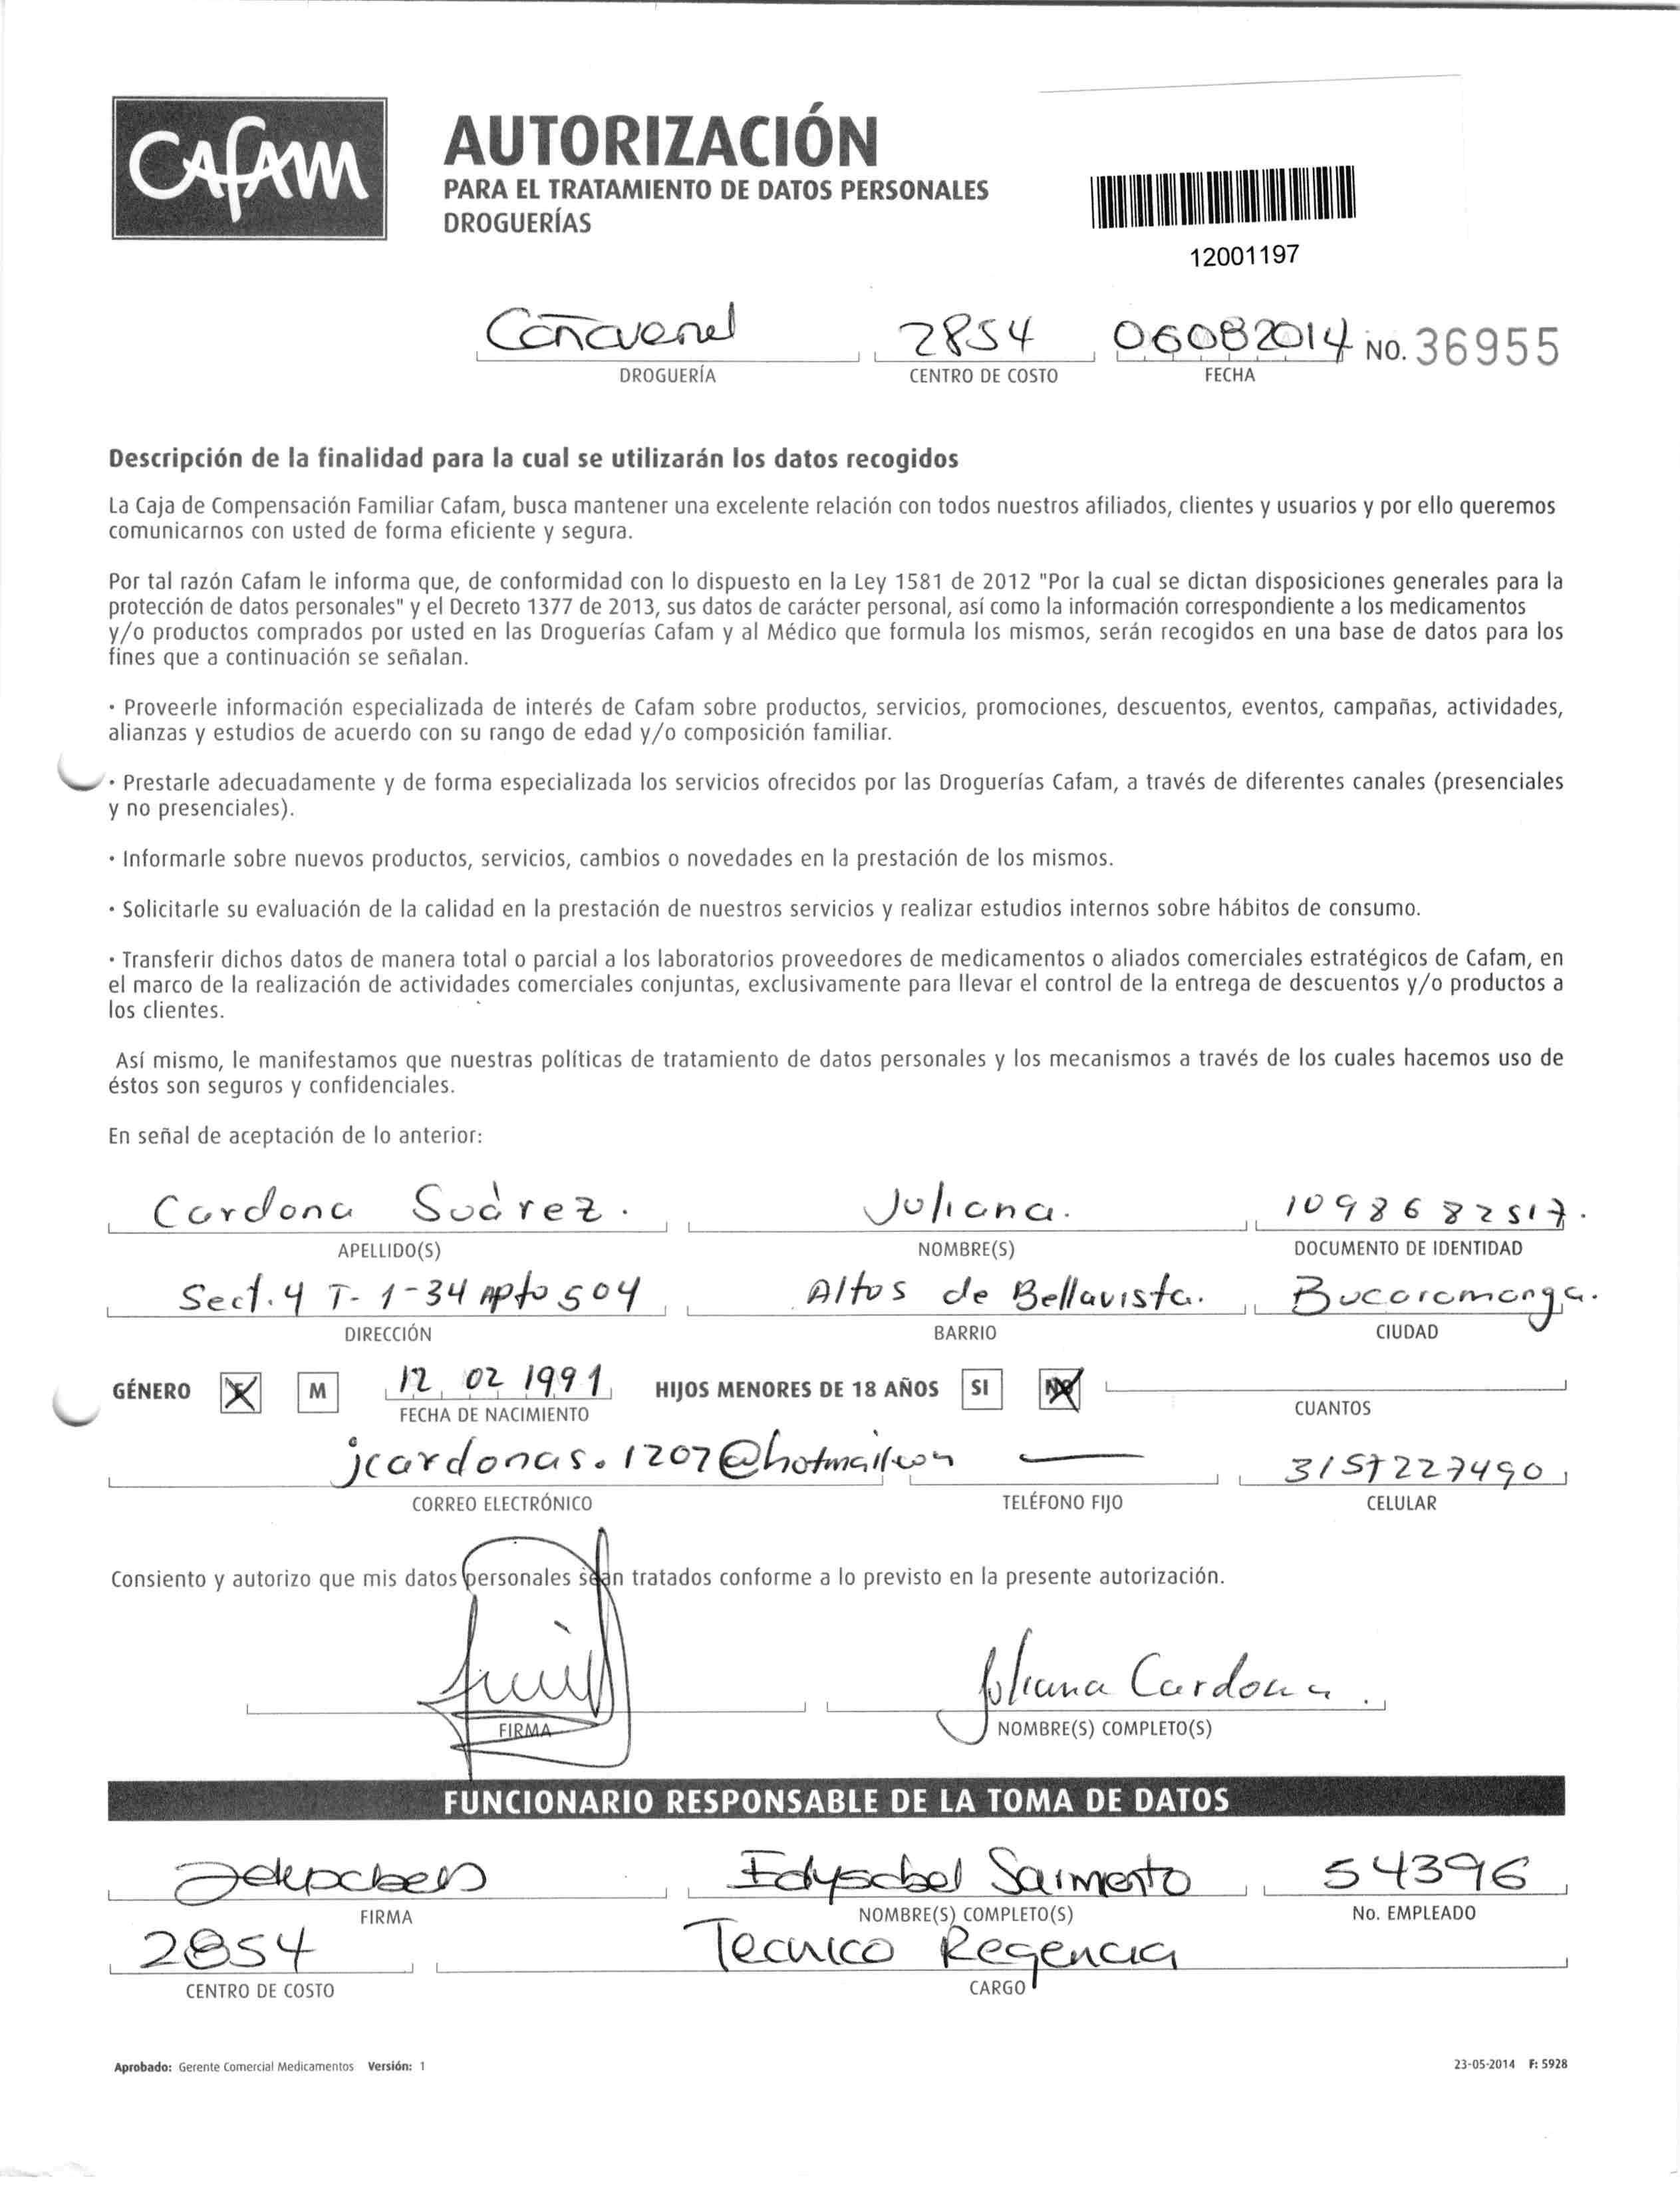 CAFAM
AUTORIZACIÓN
PARA EL TRATAMIENTO DE DATOS PERSONALES
DROGUERÍAS
12001197
Cañaveral 2854 06082014 NO. 36955
DROGUERÍA CENTRO DE COSTO FECHA
Descripción de la finalidad para la cual se utilizarán los datos recogidos
La Caja de Compensación Familiar Cafam, busca mantener una excelente relación con todos nuestros afiliados, clientes y usuarios y por ello queremos
comunicarnos con usted de forma eficiente y segura.
Por tal razón Cafam le informa que, de conformidad con lo dispuesto en la Ley 1581 de 2012 "Por la cual se dictan disposiciones generales para la
protección de datos personales" y el Decreto 1377 de 2013, sus datos de carácter personal, así como la información correspondiente a los medicamentos
y/o productos comprados por usted en las Droguerías Cafam y al Médico que formula los mismos, serán recogidos en una base de datos para los
fines que a continuación se señalan.
· Proveerle información especializada de interés de Cafam sobre productos, servicios, promociones, descuentos, eventos, campañas, actividades,
alianzas y estudios de acuerdo con su rango de edad y/o composición familiar.
· Prestarle adecuadamente y de forma especializada los servicios ofrecidos por las Droguerías Cafam, a través de diferentes canales (presenciales
y no presenciales).
· Informarle sobre nuevos productos, servicios, cambios o novedades en la prestación de los mismos.
· Solicitarle su evaluación de la calidad en la prestación de nuestros servicios y realizar estudios internos sobre hábitos de consumo.
· Transferir dichos datos de manera total o parcial a los laboratorios proveedores de medicamentos o aliados comerciales estratégicos de Cafam, en
el marco de la realización de actividades comerciales conjuntas, exclusivamente para llevar el control de la entrega de descuentos y/o productos a
los clientes.
Así mismo, le manifestamos que nuestras políticas de tratamiento de datos personales y los mecanismos a través de los cuales hacemos uso de
éstos son seguros y confidenciales.
En señal de aceptación de lo anterior:
Cardona Suárez. Juliana. 1098682517.
APELLIDO(S) NOMBRE(S) DOCUMENTO DE IDENTIDAD
Sect. 4 T- 1-34 Apto 504 Altos de Bellavista. Bucaramanga.
DIRECCIÓN BARRIO CIUDAD
GÉNERO F M 12 02 1991 HIJOS MENORES DE 18 AÑOS SI NO
FECHA DE NACIMIENTO CUANTOS
jcardonas.1207@hotmail.com — 3157227490
CORREO ELECTRÓNICO TELÉFONO FIJO CELULAR
Consiento y autorizo que mis datos personales sean tratados conforme a lo previsto en la presente autorización.
Juliana Cardona.
FIRMA NOMBRE(S) COMPLETO(S)
FUNCIONARIO RESPONSABLE DE LA TOMA DE DATOS
Edysabel Sarmiento 54396
FIRMA NOMBRE(S) COMPLETO(S) No. EMPLEADO
2854 Tecnico Regencia
CENTRO DE COSTO CARGO
Aprobado: Gerente Comercial Medicamentos Versión: 1 23-05-2014 F: 5928